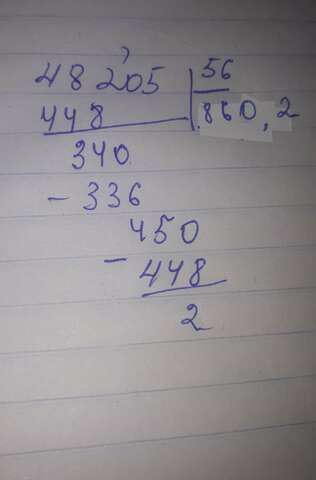 48205 56
448 860,2
340
- 336
450
- 448
2